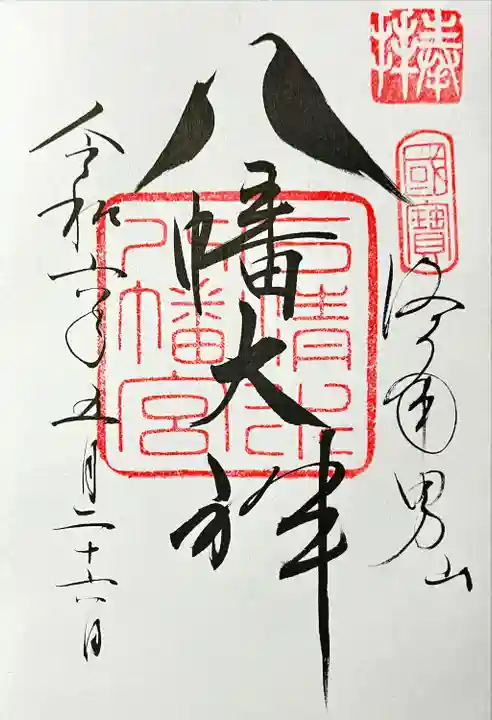 奉拝
國寶
洛南男山
八幡大神
石清水八幡宮
令和六年五月二十六日